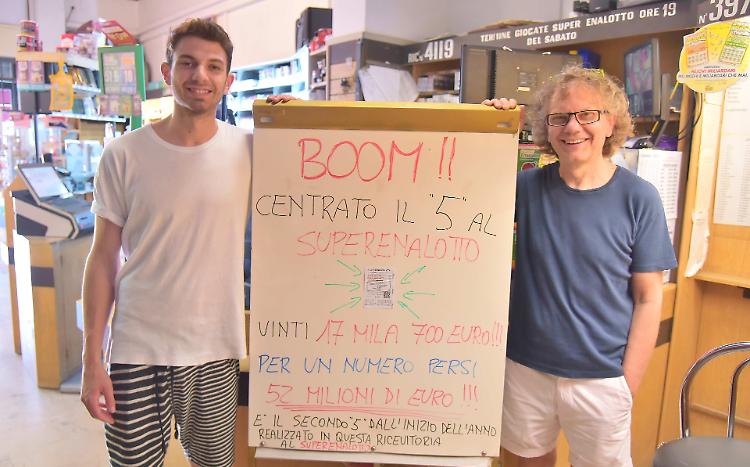 TERMINE GIOCATE SUPER ENALOTTO ORE 19
DEL SABATO
RIC. 4119
N° 397
BOOM !!
CENTRATO IL "5" AL
SUPERENALOTTO
VINTI 17 MILA 700 EURO!!!
PER UN NUMERO PERSI
52 MILIONI DI EURO !!!
E' IL SECONDO "5" DALL'INIZIO DELL'ANNO
REALIZZATO IN QUESTA RICEVITORIA
AL SUPERENALOTTO